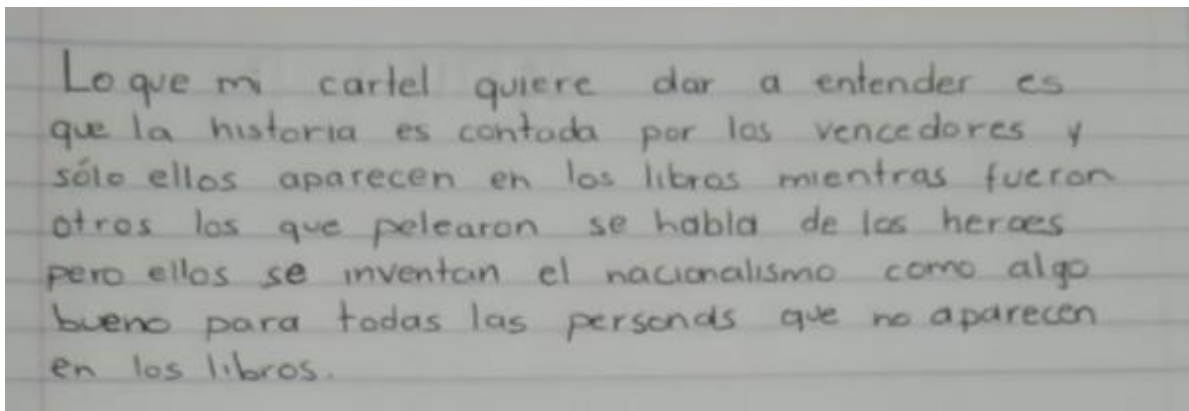 Lo que mi cartel quiere dar a entender es
que la historia es contada por los vencedores y
sólo ellos aparecen en los libros mientras fueron
otros los que pelearon se habla de los heroes
pero ellos se inventan el nacionalismo como algo
bueno para todas las personas que no aparecen
en los libros.